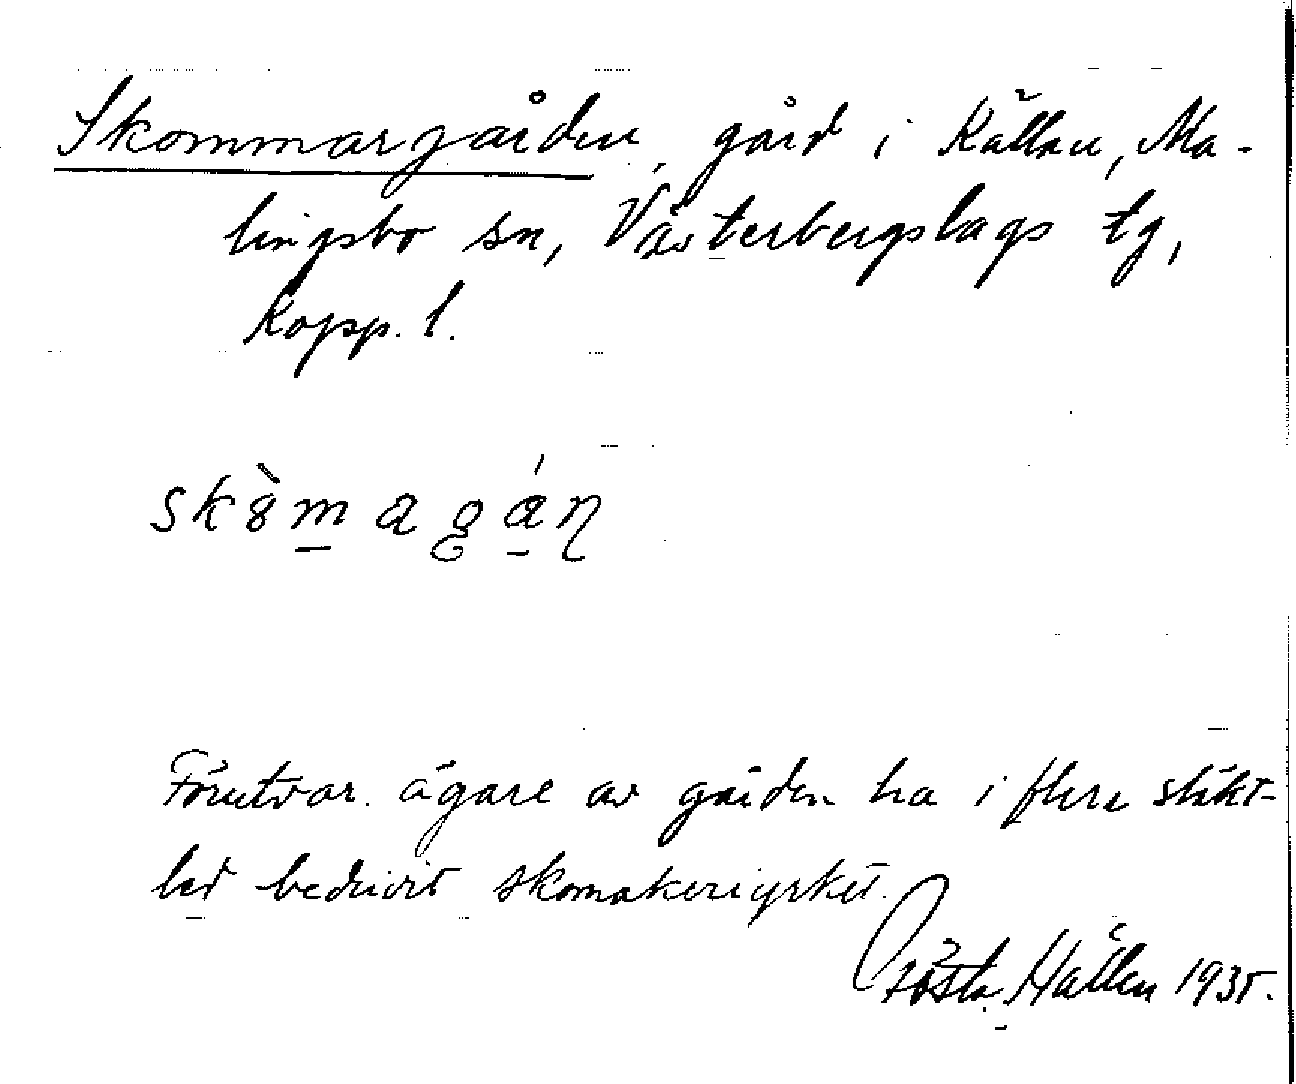 Skommargården, gård i Källan, Ma-
lingsbo sn, Västerbergslags tg,
Kopp. l.
skò̀magán
Förutvar. ägare av gården ha i flera släkt-
led bedrivit skomakeriyrket.
Gösta Hällen 1935.